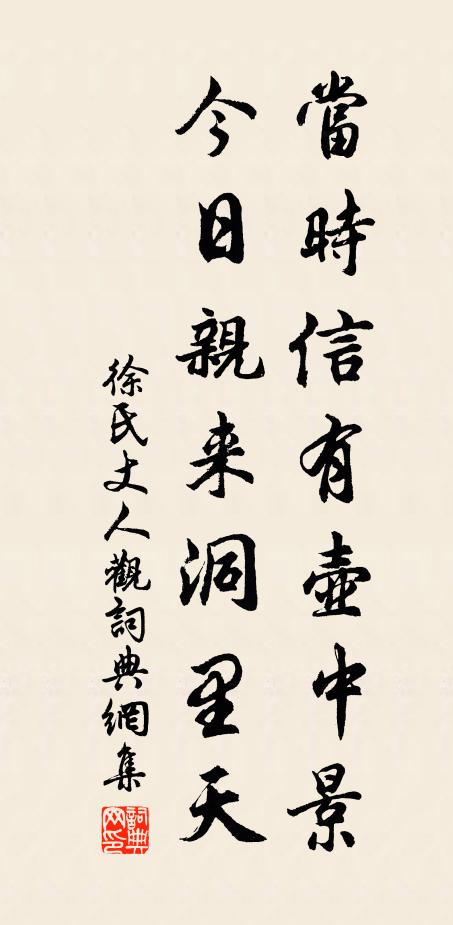 當時信有壺中景
今日親来洞里天
徐氏丈人觀詞典網集
詞典网印